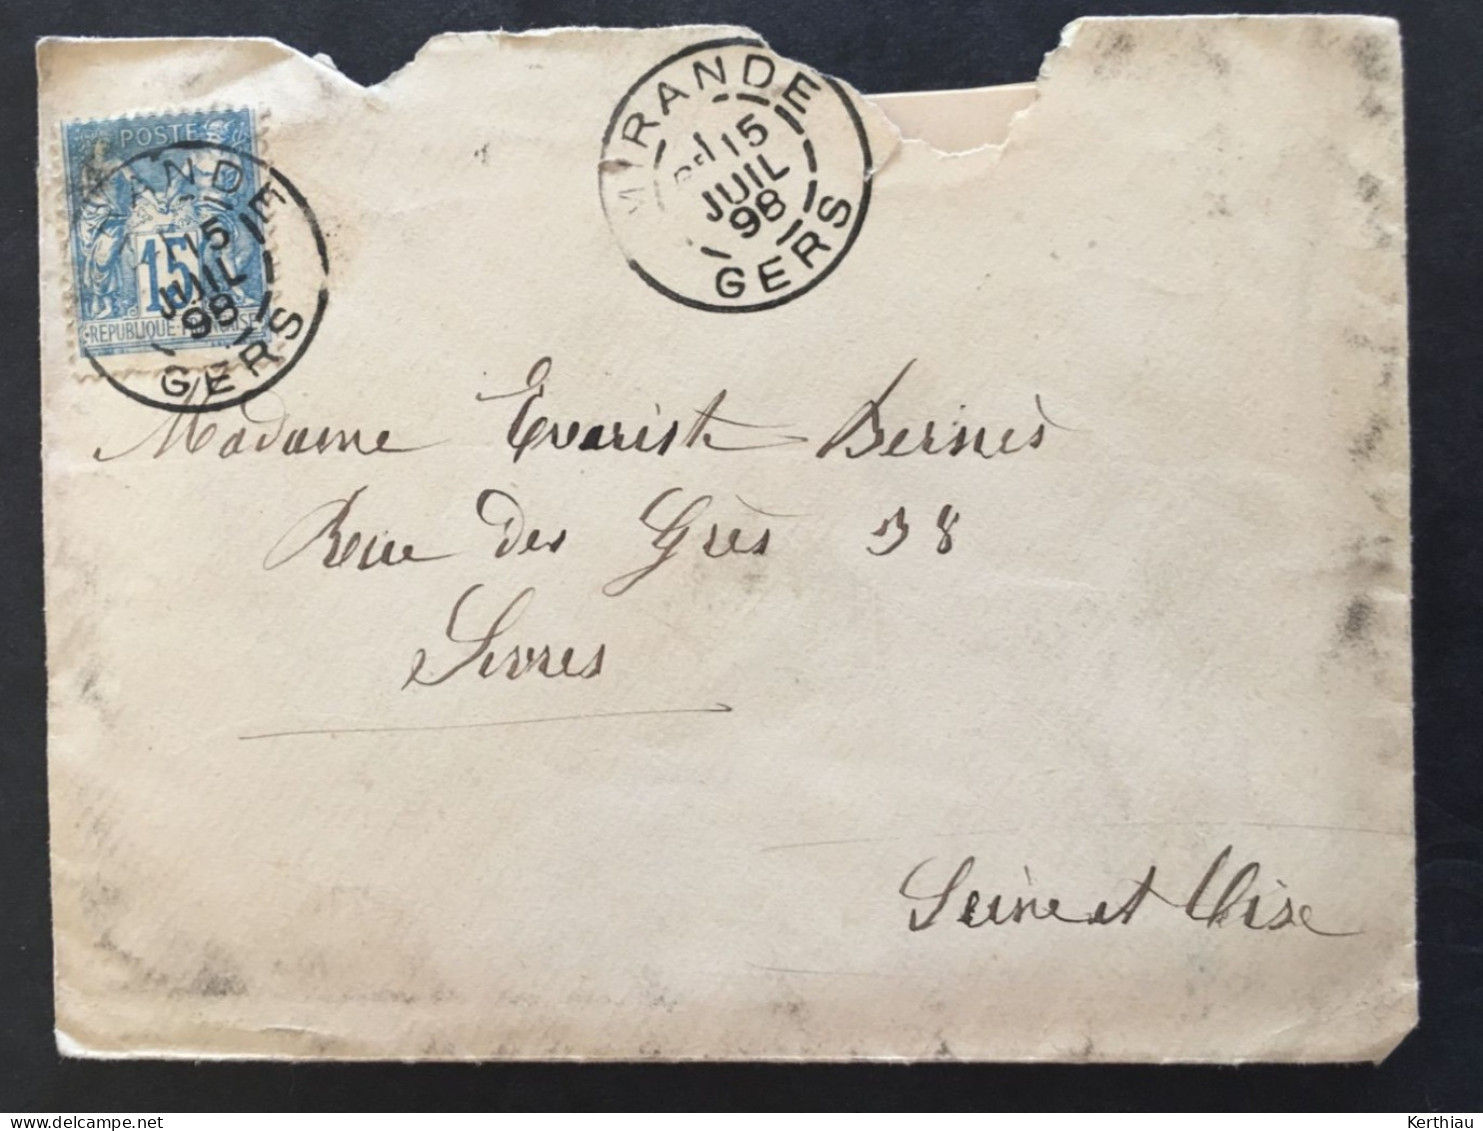 POSTE
15
REPUBLIQUE FRANCAISE
ANDE
15
JUIL
98
GERS
MIRANDE
15
JUIL
98
GERS
Madame Evariste Bernès
Rue des Grès 38
Sèvres
Seine et Oise
Kerthiau